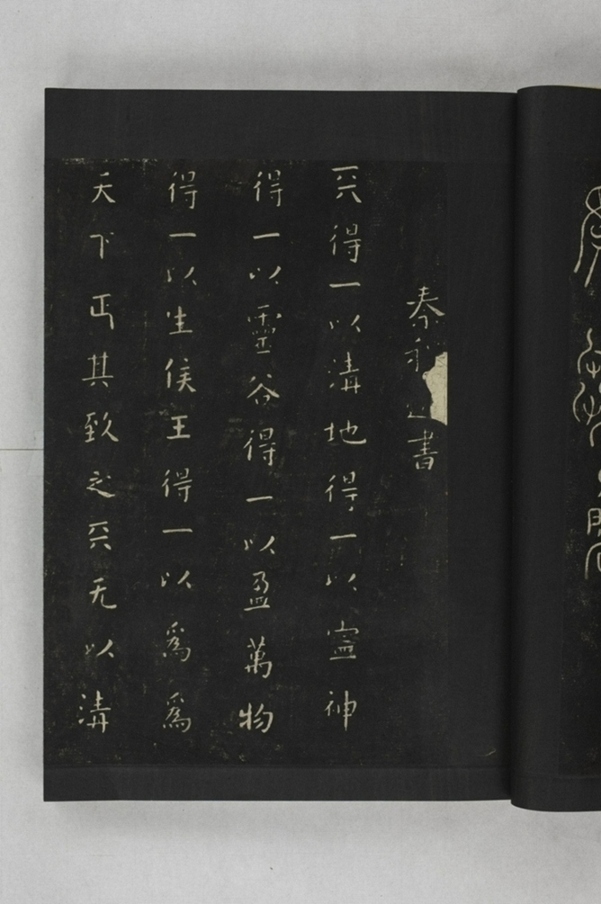 秦書
天得一以清地得一以寍神
得一以靈谷得一以盈萬物
得一以生侯王得一以爲爲
天下正其致之天无以清